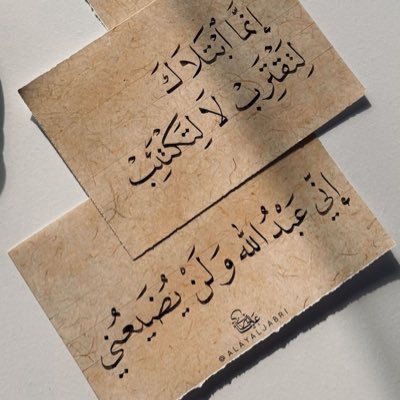 إِنَّمَا ٱبْتَلَاكَ
لِتَقْتَرِبْ لَا لِتَكْتَئِبْ
إِنِّي عَبْدُ اللّٰه وَلَنْ يُضَيِّعُنِي
@ALAYALJABRI